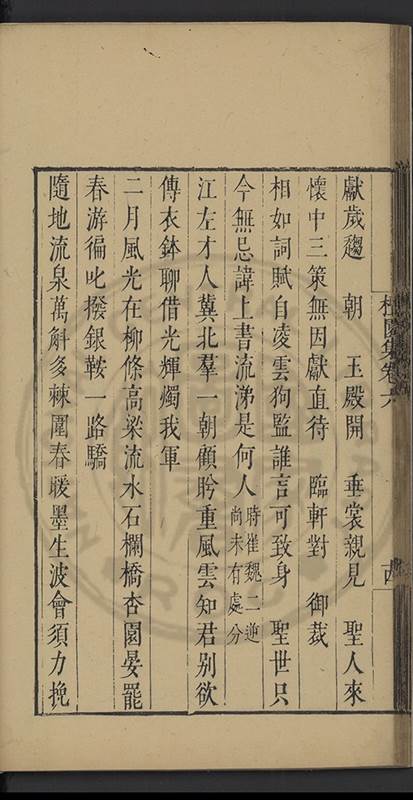 獻歲趨　朝　王殿開　垂裳親見　聖人來
懷中三策無因獻直待　臨軒對　御裁
相如詞賦自凌雲狗監誰言可致身　聖世只
今無忌諱上書流涕是何人時崔魏二逆尚未有處分
江左才人冀北羣一朝顧盻重風雲知君别欲
傳衣鉢聊借光輝燭我軍
二月風光在柳條高梁流水石欄橋杏園晏罷
春游徧叱撥銀鞍一路驕
隨地流泉萬斛多棘圍春暖墨生波會須力挽
園集卷六